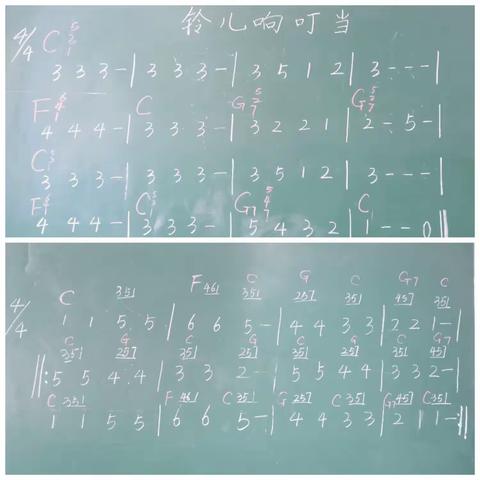 铃儿响叮当
4/4 C 5 3 1
3 3 3 - | 3 3 3 - | 3 5 1 2 | 3 - - - |
F C G7 G 5 2 7
4 4 4 - | 3 3 3 - | 3 2 2 1 | 2 - 5 - |
C
3 3 3 - | 3 3 3 - | 3 5 1 2 | 3 - - - |
F C G7 5 4 7 C
4 4 4 - | 3 3 3 - | 5 4 3 2 | 1 - - 0 ‖
C 351 F 461 C 351 G 257 C 351 G7 457 C 351
4/4 1 1 5 5 | 6 6 5 - | 4 4 3 3 | 2 2 1 - |
C 351 G 257 C 351 G 257 C 351 G 257 C 351 G7 457
‖: 5 5 4 4 | 3 3 2 - | 5 5 4 4 | 3 3 2 - |
C 351 F 461 C 351 G 257 C 351 G7 457 C 351
1 1 5 5 | 6 6 5 - | 4 4 3 3 | 2 1 1 - :‖